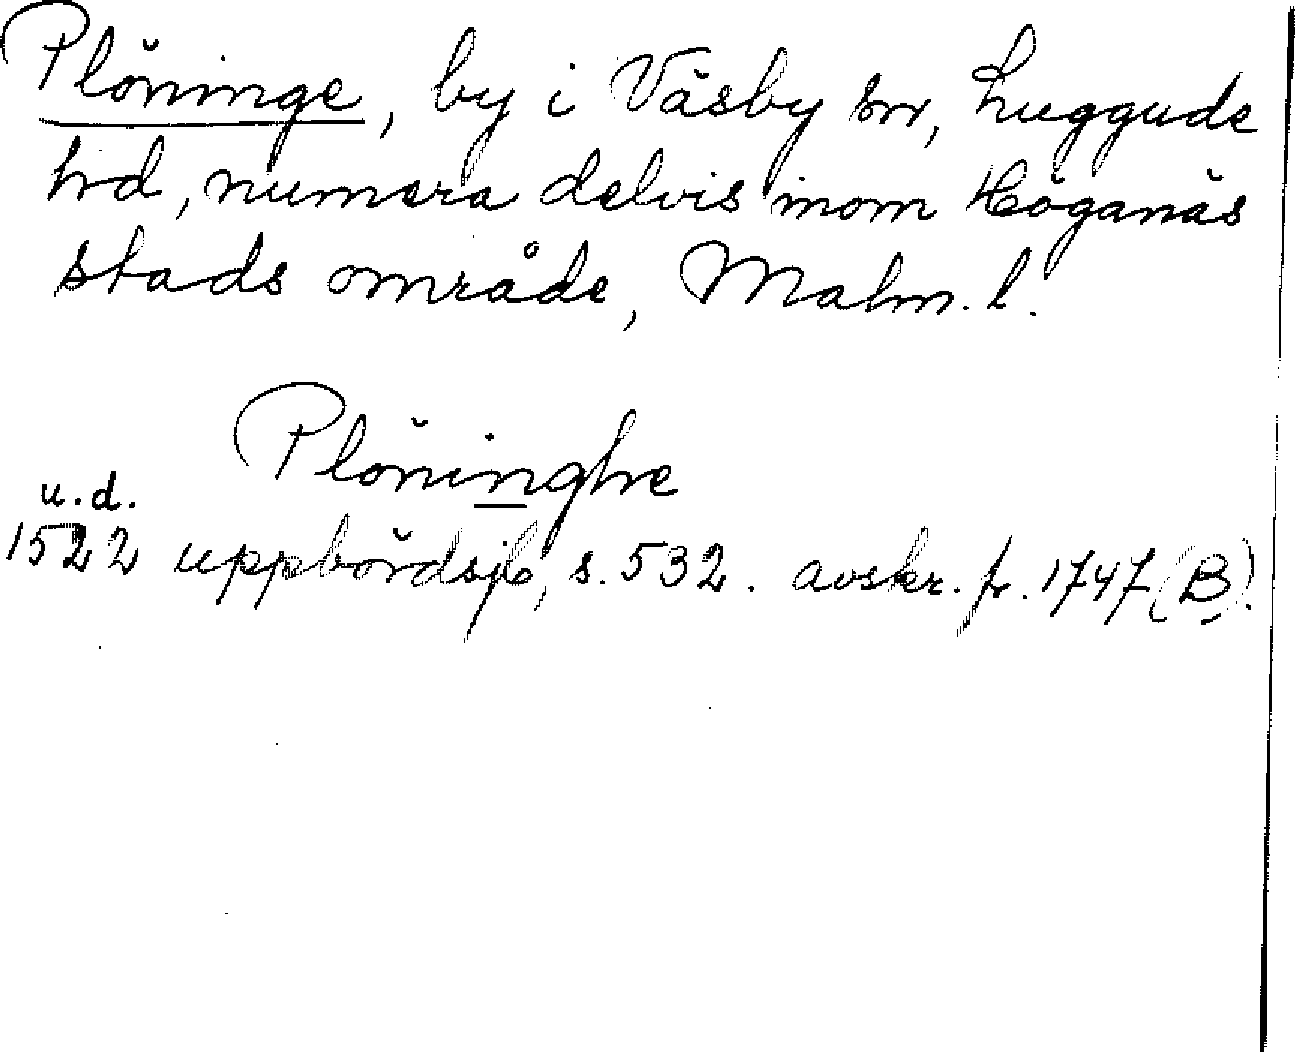 Plöninge, by i Väsby sn, Luggude
hrd, numera delvis inom Höganäs
stads område, Malm. l.
Plöninghe
u.d.
1522 uppbördsjb, s. 532. avskr. fr. 1747 (B).